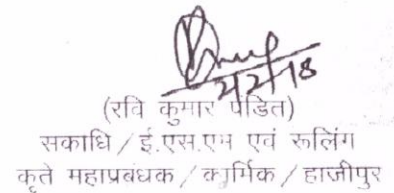 2/2/18
(रवि कुमार पंडित)
सकाधि / ई.एस.एम एवं रूलिंग
कृते महाप्रबंधक / कार्मिक / हाजीपुर